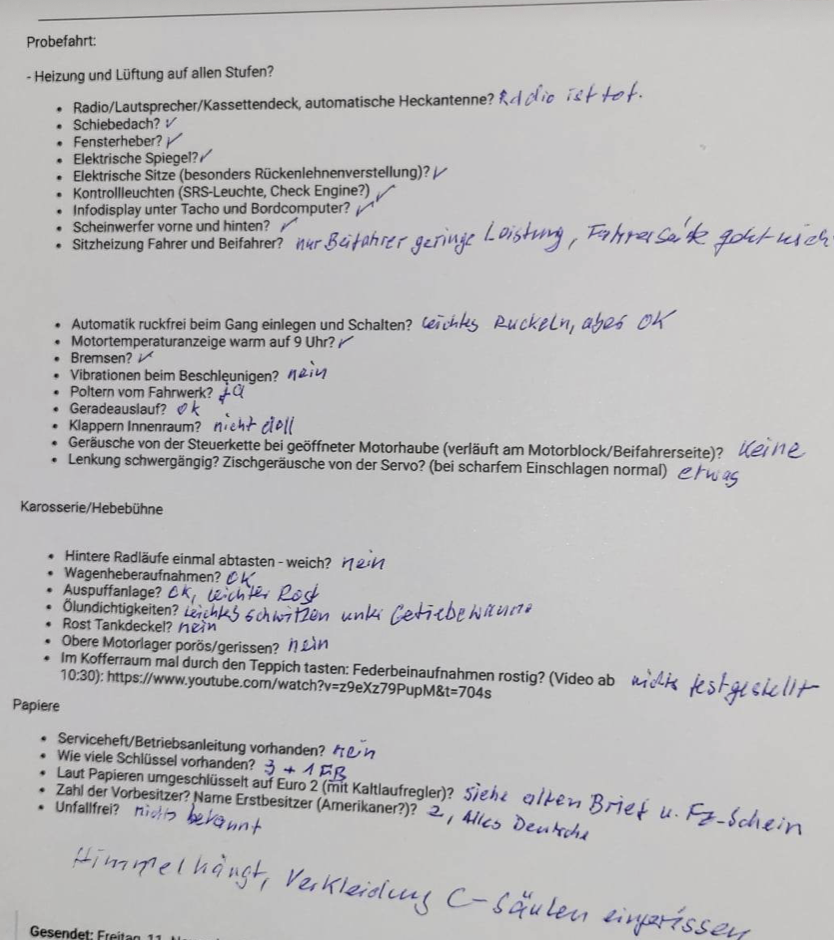 Probefahrt:
- Heizung und Lüftung auf allen Stufen?
• Radio/Lautsprecher/Kassettendeck, automatische Heckantenne? Radio ist tot.
• Schiebedach? ✓
• Fensterheber? ✓
• Elektrische Spiegel? ✓
• Elektrische Sitze (besonders Rückenlehnenverstellung)? ✓
• Kontrollleuchten (SRS-Leuchte, Check Engine?) ✓
• Infodisplay unter Tacho und Bordcomputer? ✓
• Scheinwerfer vorne und hinten? ✓
• Sitzheizung Fahrer und Beifahrer? nur Beifahrer geringe Leistung, Fahrerseite geht nich
• Automatik ruckfrei beim Gang einlegen und Schalten? leichtes Ruckeln, aber OK
• Motortemperaturanzeige warm auf 9 Uhr? ✓
• Bremsen? ✓
• Vibrationen beim Beschleunigen? nein
• Poltern vom Fahrwerk? ja
• Geradeauslauf? ok
• Klappern Innenraum? nicht doll
• Geräusche von der Steuerkette bei geöffneter Motorhaube (verläuft am Motorblock/Beifahrerseite)? Keine
• Lenkung schwergängig? Zischgeräusche von der Servo? (bei scharfem Einschlagen normal) etwas
Karosserie/Hebebühne
• Hintere Radläufe einmal abtasten - weich? nein
• Wagenheberaufnahmen? OK
• Auspuffanlage? Ok, leichter Rost
• Ölundichtigkeiten? leichtes schwitzen unter Getriebewanne
• Rost Tankdeckel? nein
• Obere Motorlager porös/gerissen? nein
• Im Kofferraum mal durch den Teppich tasten: Federbeinaufnahmen rostig? (Video ab nichts festgestellt
10:30): https://www.youtube.com/watch?v=z9eXz79PupM&t=704s
Papiere
• Serviceheft/Betriebsanleitung vorhanden? nein
• Wie viele Schlüssel vorhanden? 3 + 1 FB
• Laut Papieren umgeschlüsselt auf Euro 2 (mit Kaltlaufregler)? siehe alten Brief u. Fz-Schein
• Zahl der Vorbesitzer? Name Erstbesitzer (Amerikaner?)? 2, Alles Deutsche
• Unfallfrei? nichts bekannt
Himmel hängt, Verkleidung C-Säulen eingerissen
Gesendet: Freitag, 11.